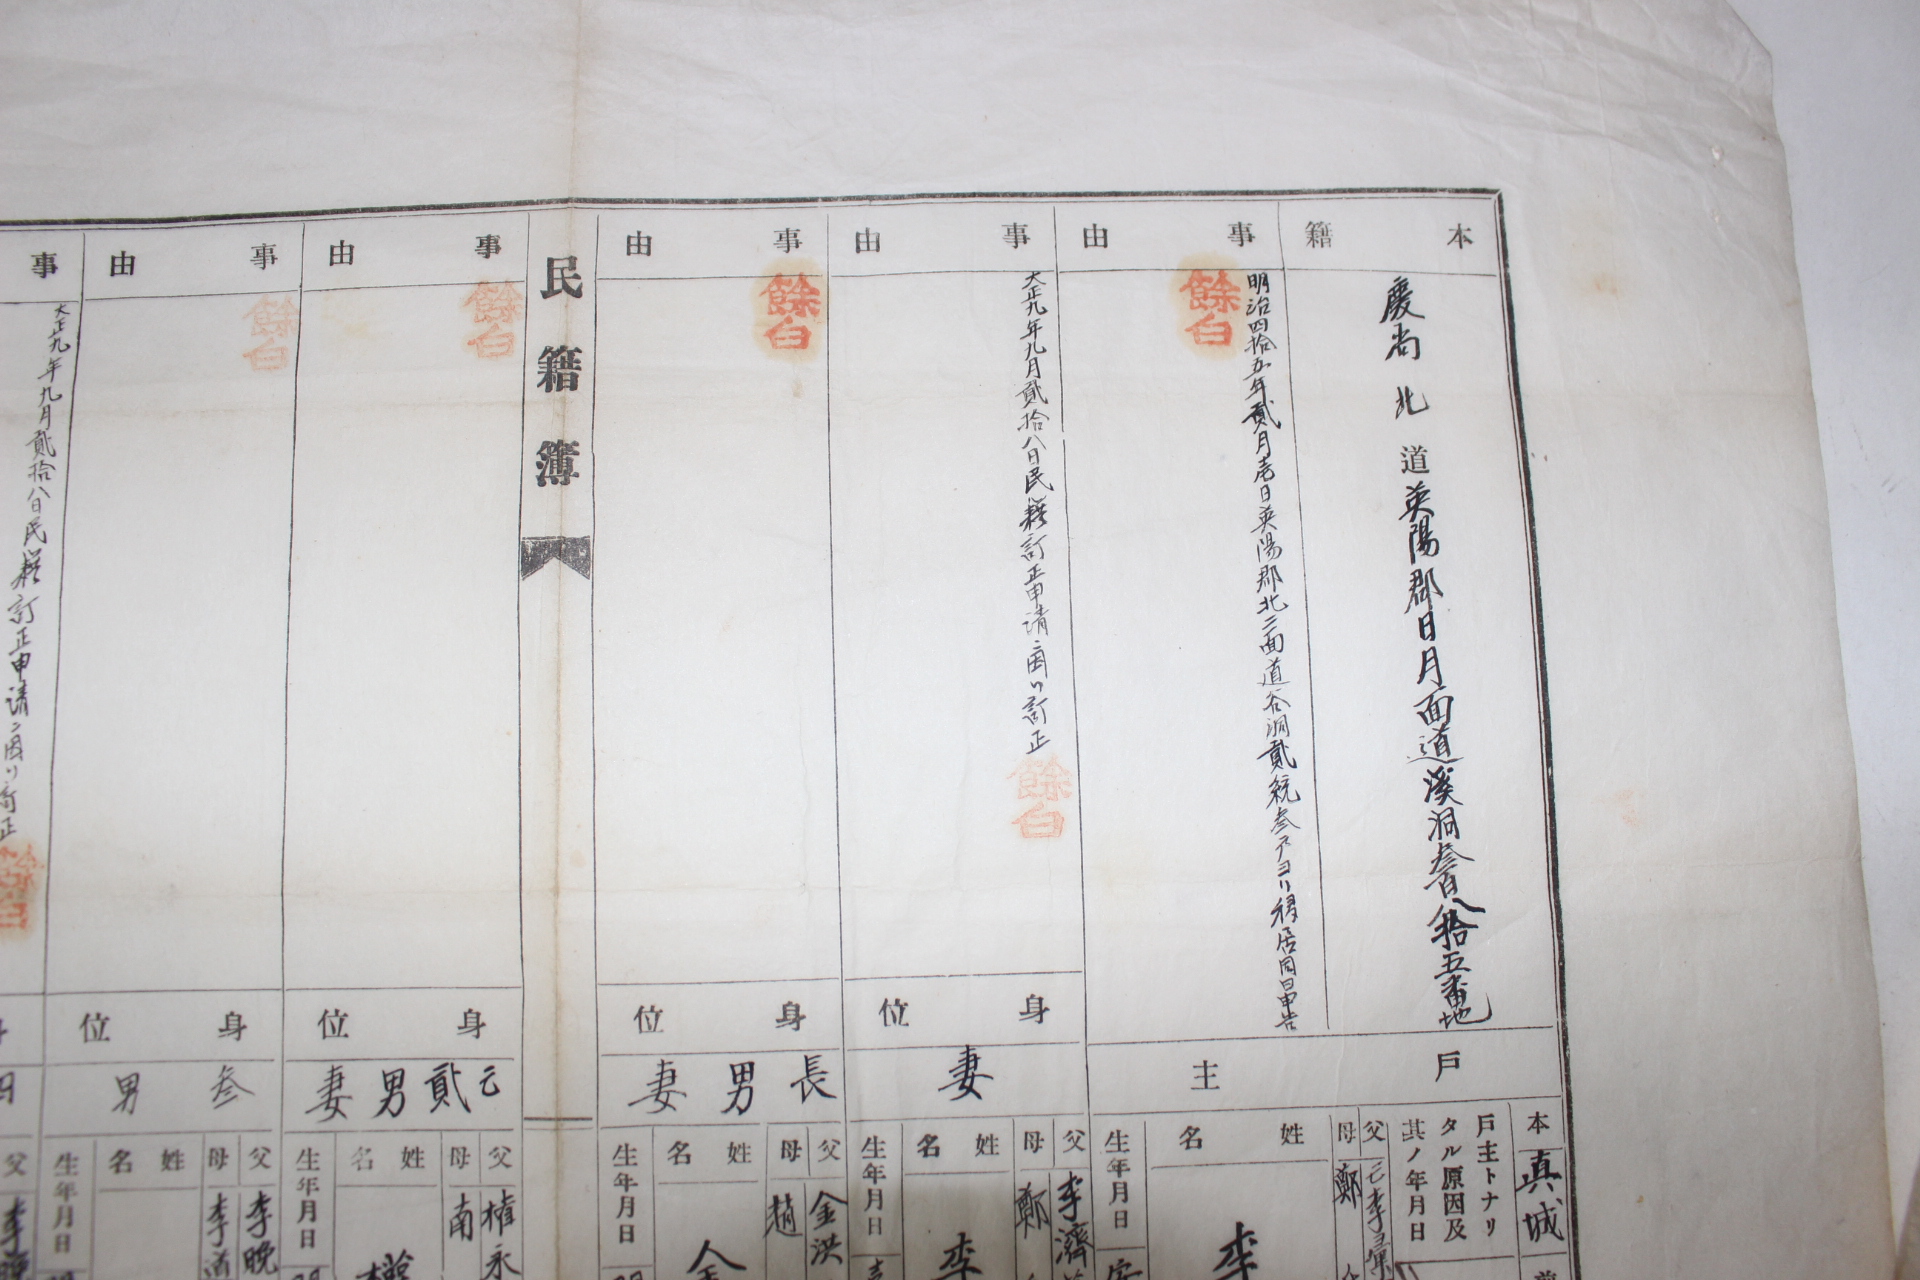 本籍
慶尚北道英陽郡日月面道溪洞参百八拾五番地
事由
明治四拾五年貳月壱日英陽郡北二面道谷洞貳統参戸ヨリ移居同日申告
餘白
戸主
本 真城
戸主トナリタル原因及其ノ年月日
父
母 鄭
姓名 李
生年月日
事由
大正九年九月貳拾八日民籍訂正申請ニ因リ訂正
餘白
身位
妻
父 李濟
母 鄭
姓名 李
生年月日
事由
餘白
身位
長男妻
父 金洪
母 趙
姓名 金
生年月日
民籍簿
事由
餘白
身位
亡貳男妻
父 権永
母 南
姓名 権
生年月日
事由
餘白
身位
参男
父 李晩
母 李道
姓名
生年月日
事
大正九年九月貳拾八日民籍訂正申請ニ因リ訂正
餘白
身
四
父 李晩